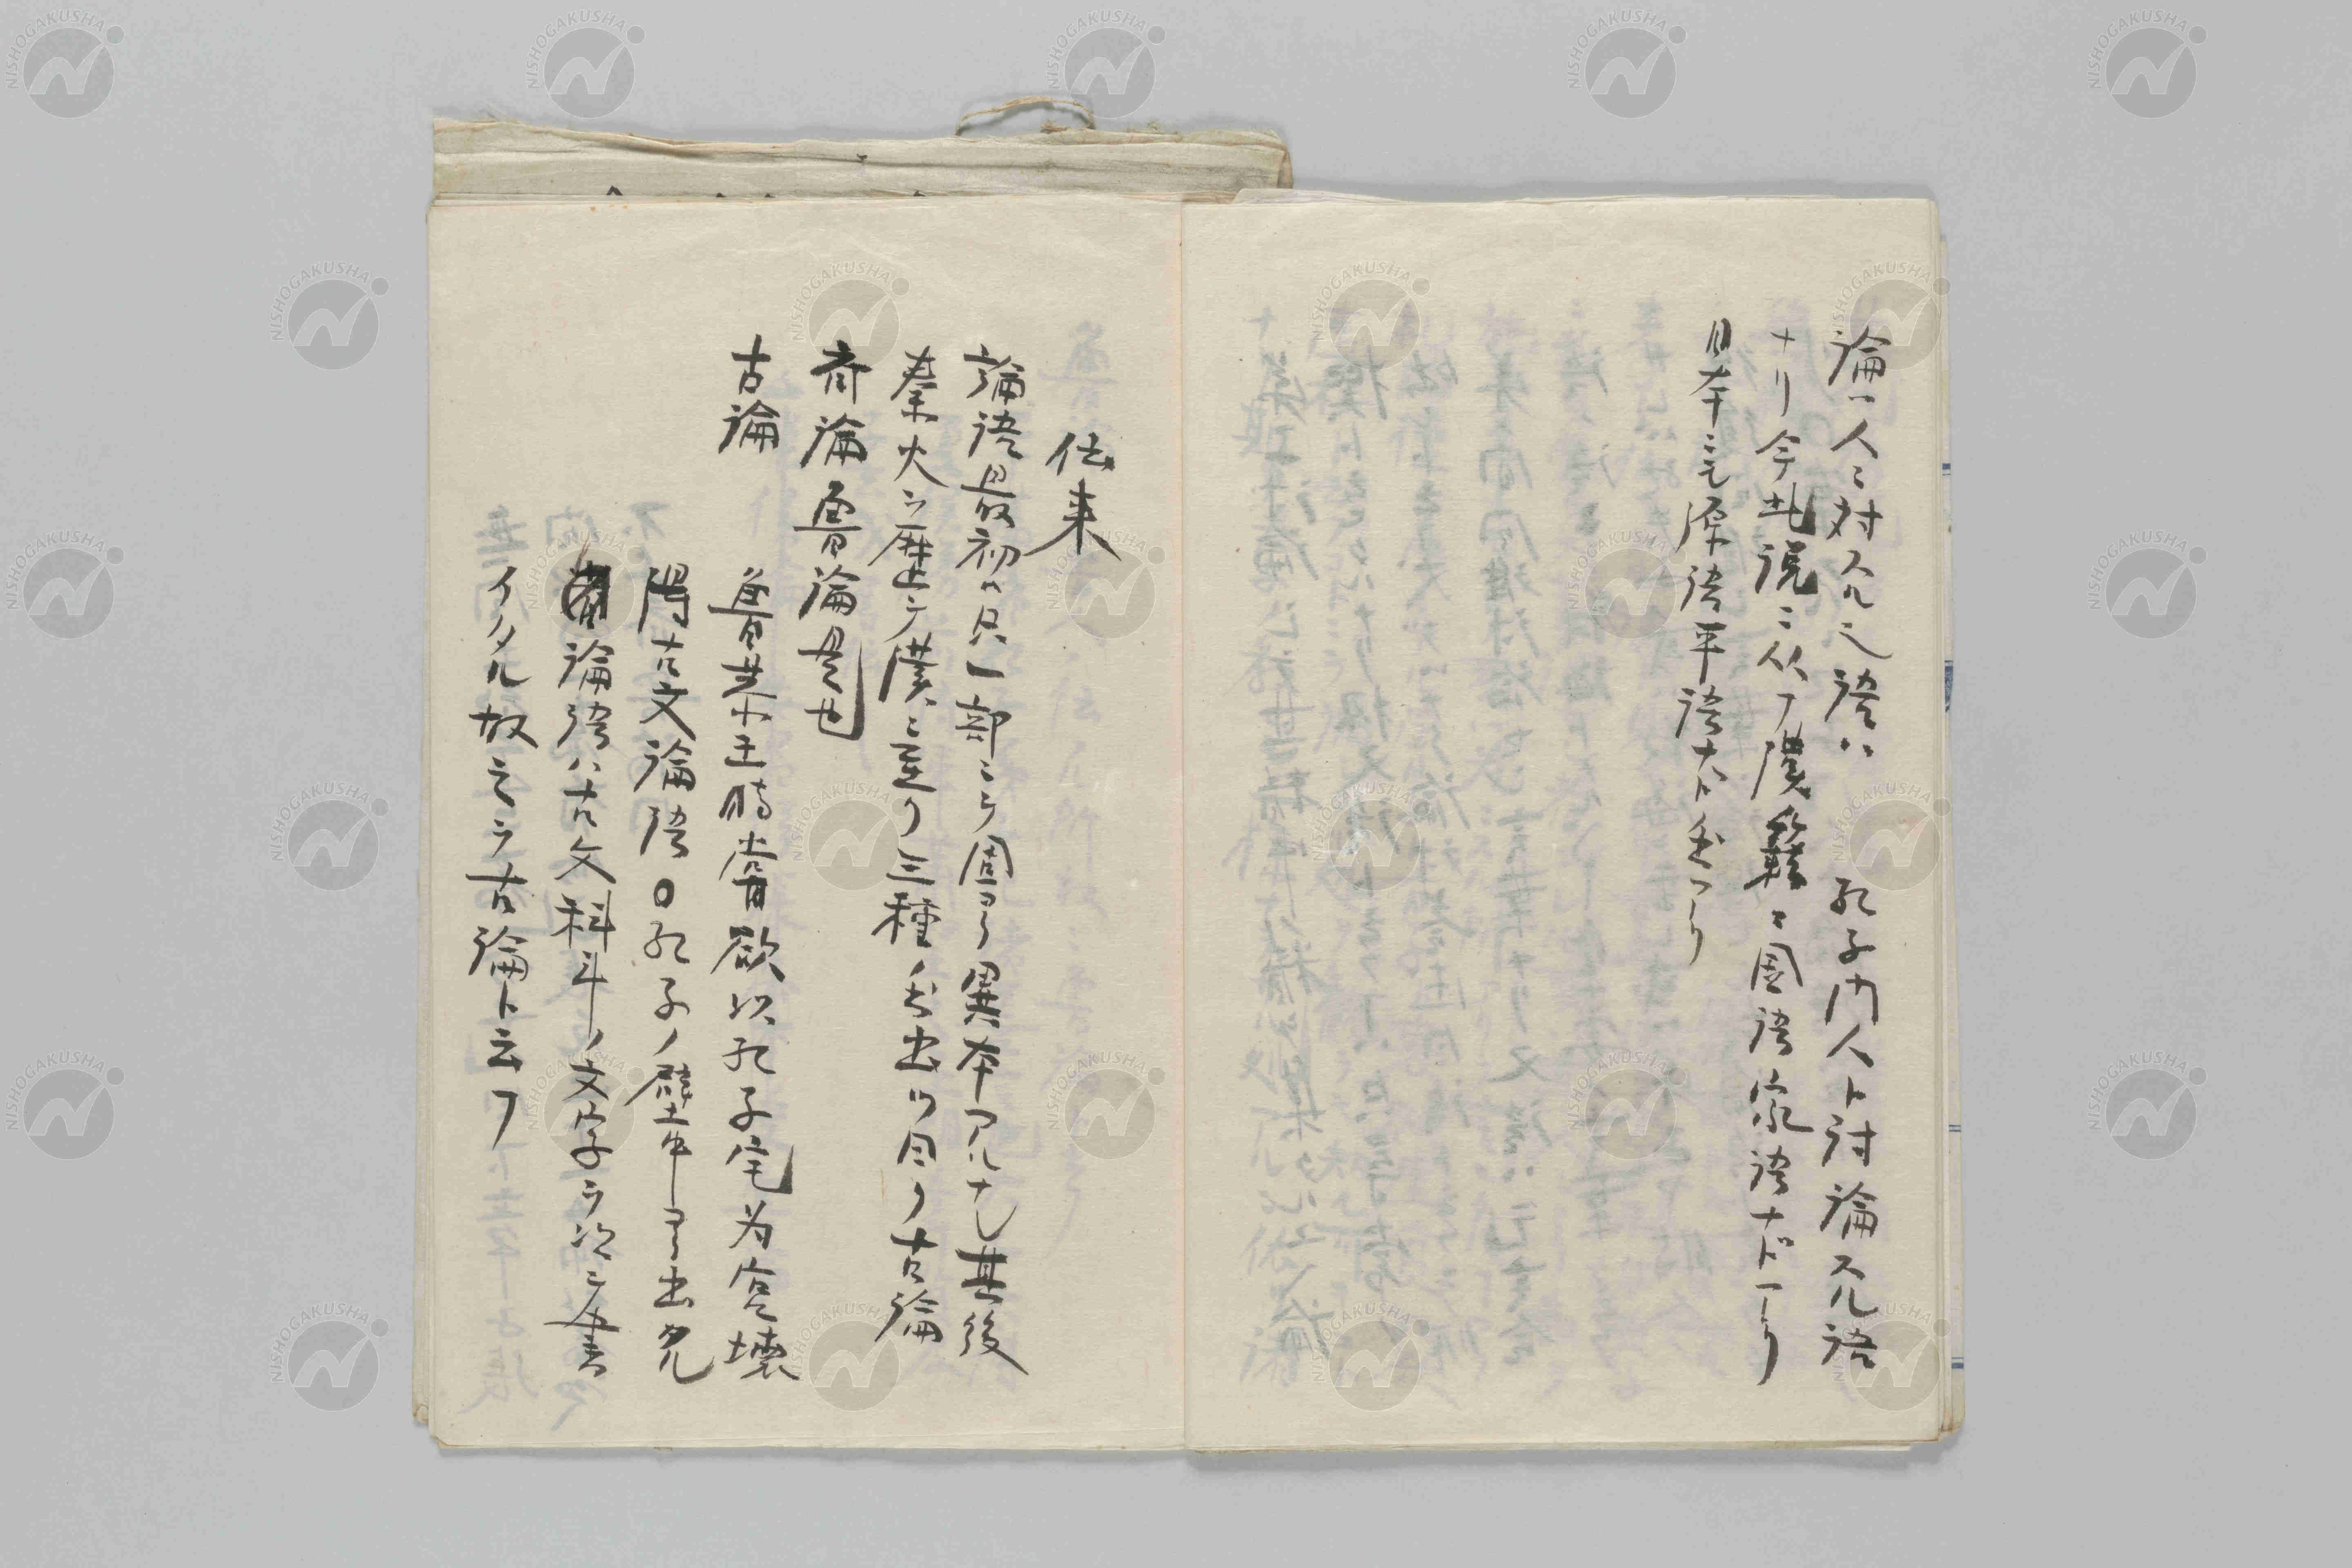 論一人ニ対スル之語ハ 孔子門人ト討論スル語
ナリ今此説ニ从フ漢籍ニ国語家語ナドアリ
日本ニモ原語平語ナド云フアリ
伝来
論語最初ハ只一部ニシテ固ヨリ異本アルナシ其後
秦火ヲ歴テ漢ニ至リ三種ノ本出ツ曰ク古論
斉論魯論是也
古論 魯恭王時嘗欲以孔子宅为宮壊
得古文論語○孔子ノ壁中ヨリ出ル
論語ハ古文科斗ノ文字ヲ以テ書
イタル故之ヲ古論ト云フ
NISHOGAKUSHA